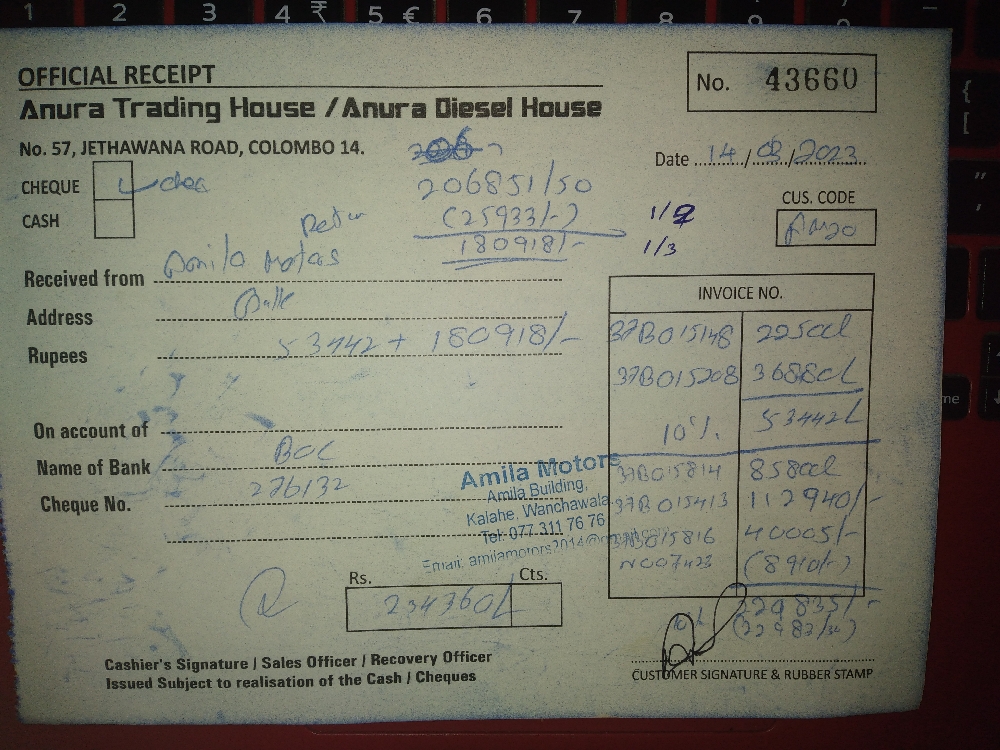 OFFICIAL RECEIPT
No. 43660
Anura Trading House / Anura Diesel House
No. 57, JETHAWANA ROAD, COLOMBO 14.
Date 14/03/2023
CHEQUE
CASH
206851/50
(25933/-)
180918/-
1/2
1/3
CUS. CODE
Received from Amila Motors
Address Galle
Rupees 53442 + 180918/-
On account of
Name of Bank BOC
Cheque No. 276132
INVOICE NO.
37B015148 22500/
37B015208 36880/
10%. 53442/
37B015814 85800/
37B015413 112940/-
37B015816 40005/-
N007423 (8910/-)
10% 229835/-
Amila Motors
Amila Building,
Kalahe, Wanchawala.
Tel: 077 311 76 76
Email: amilamotors2014@gmail.com
Rs. Cts.
234360/
Cashier's Signature / Sales Officer / Recovery Officer
Issued Subject to realisation of the Cash / Cheques
CUSTOMER SIGNATURE & RUBBER STAMP